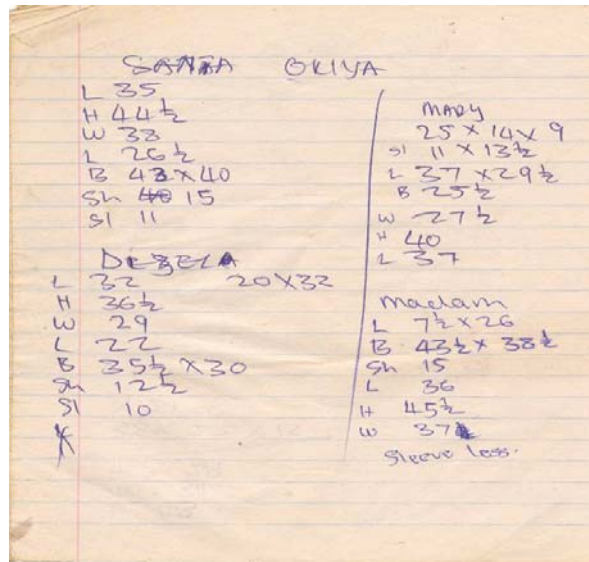 SANTA OKIYA
L 35
H 44½
W 38
L 26½
B 43 X 40
Sh 40 15
Sl 11
DEZELA
L 32 20 X 32
H 36½
W 29
L 22
B 35½ X 30
Sh 12½
Sl 10
MARY
25 X 14 X 9
Sl 11 X 13½
L 37 X 29½
B 25½
W 27½
H 40
L 37
Madam
L 7½ X 26
B 43½ X 38½
Sh 15
L 36
H 45½
W 37
Sleeve less.